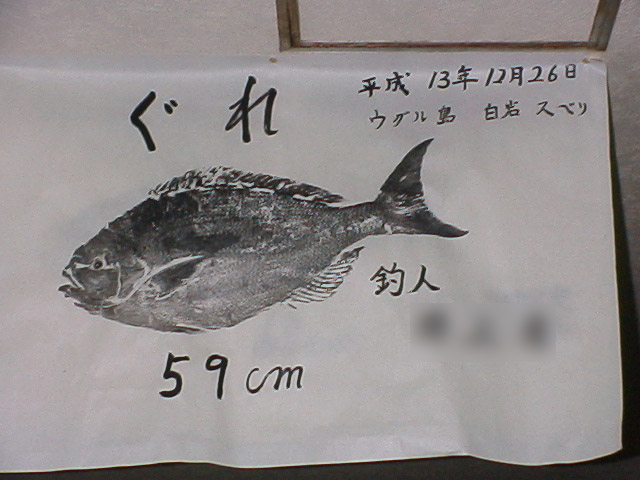 平成 13年12月26日
ウグル島 白岩 スベリ
ぐれ
釣人
59cm